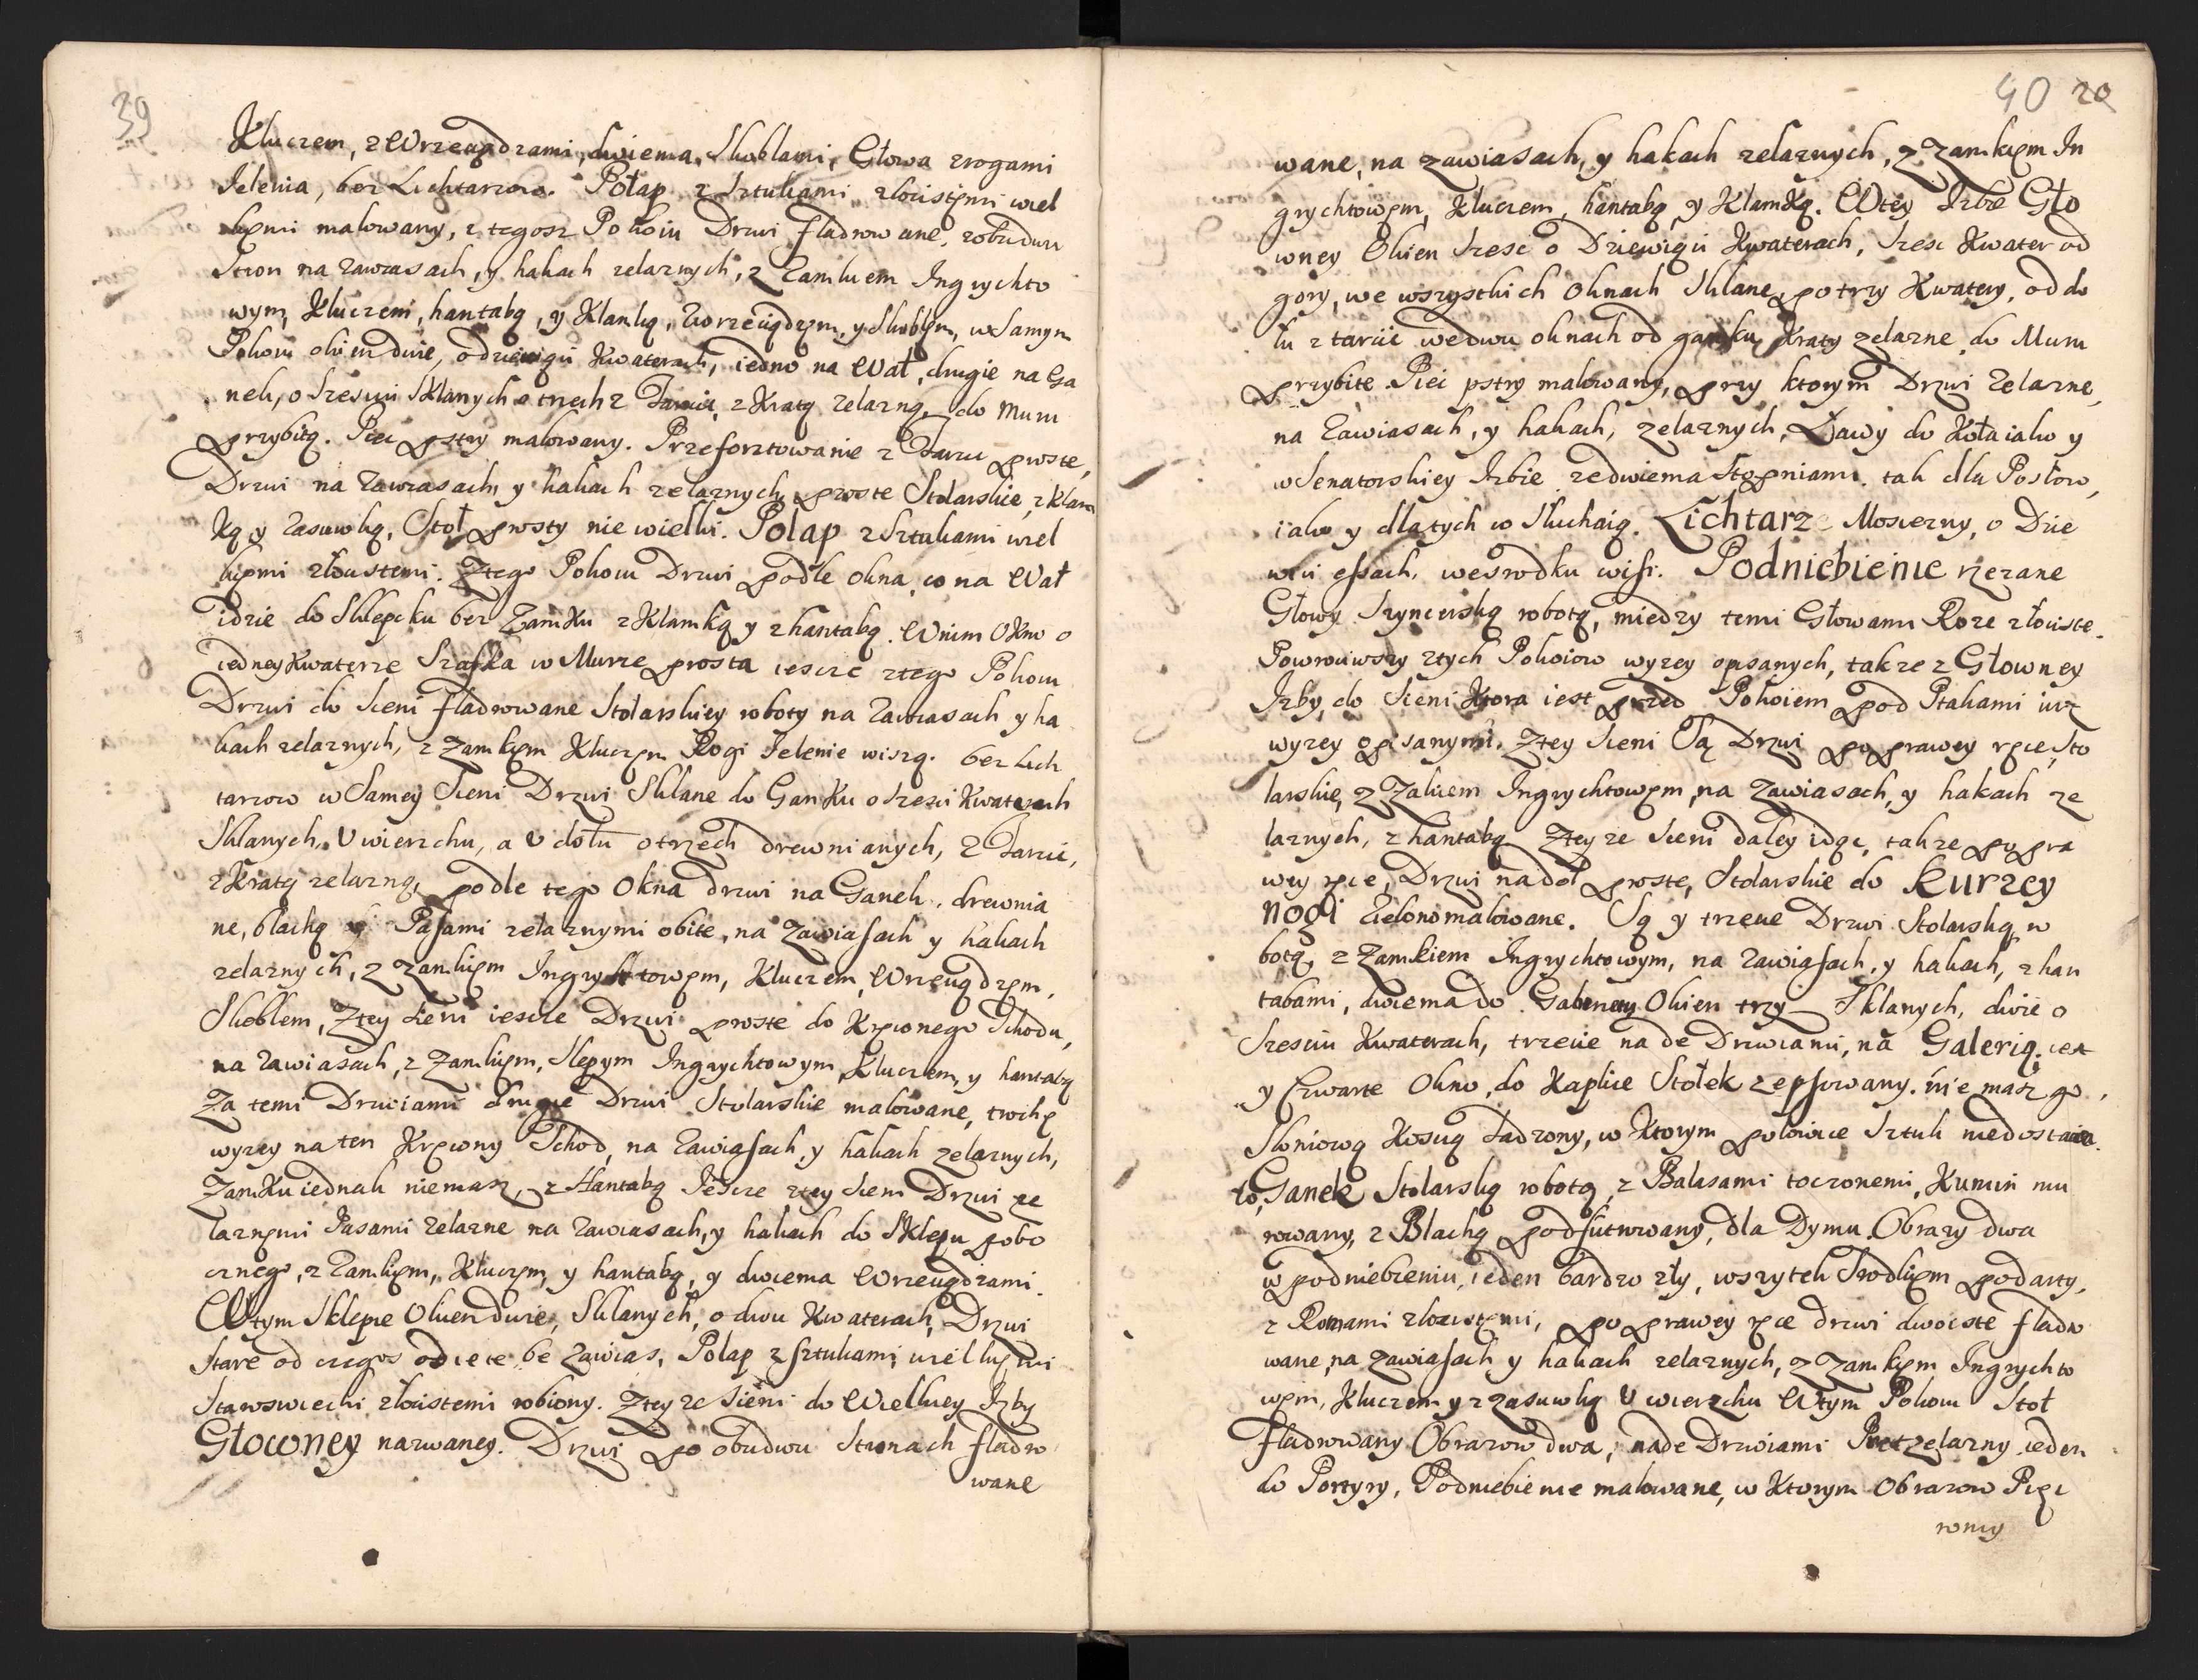 39
Kluczem, z Wrzeciądzami, dwiema Skoblami, Głowa zrogami
Jelenia, bez Lichtarzow. Połap z Sztukami złocistęmi wiel
kięmi malowany, z tegosz Pokoiu Drzwi fladrowane, zobudwu
Stron na zawiasach, y hakach zelaznych, z Zamkiem Ingrychto
wym, Kluczem, hantabą, y Klamką, Wrzeciądzęm, y Skoblęm, w Samym
Pokoiu okien dwie, odziewiąci Kwaterach, iedno na Wał, drugie na Ga
nek, o Sześciu Sklanych o trzech z Tarcic, z Kratą zelazną, do Muru
przybitą. Piec pstry malowany. Przeforztowanie z Tarcic proste,
Drzwi na zawiasach y hakach zelaznych proste Stolarskie, z Klam
Ką y zasuwką, Stoł prosty nie wielki. Polap z Sztukami wiel
kięmi złocistemi. Ztego Pokoiu Drzwi podle okna, co na Wał
idzie do Sklepcku bez ZamKu z Klamką y z hantabą. Wnim OKno o
iedney Kwaterze Szafka w Murze prosta ieszcze ztego Pokoiu
Drzwi do Sieni fladrowane Stolarskiey roboty na zawiasach y ha
kach zelaznych, z zamkięm Kluczęm Rogi Jelenie wiszą. bez Lich
tarzow w Samey Sieni Drzwi Sklane do GanKu o Sześci Kwaterach
Sklanych, U wierzchu, a U dołu o trzech drewnianych, z Tarcic,
z Kratą zelazną, podle tego Okna drzwi na Ganek, drewnia
ne, blachą y Pasami zelaznymi obite, na zawiasach y hakach
zelaznych, z zamkięm Ingrychtowym, Kluczem, Wrzeciądzęm,
Skoblem, Ztey Sieni ieszcze Drzwi proste do Kręconego Schodu,
na zawiasach, z Zamkięm, Slepym Ingrychtowym, Kluczem, y hantabą
Za temi Drzwiami drugie Drzwi Stolarskie malowane, trochę
wyzey na ten Kręcony Schod, na zawiasach, y hakach zelaznych,
ZamKu iednak niemasz, z Hantabą Jescze ztey Sieni Drzwi ze
laznęmi Pasami zelazne na zawiasach, y hakach do Sklepu pobo
cznego, z Zamkięm, Kluczęm, y hantabą, y dwiema Wrzeciądzami.
Wtym Sklepie Okien dwie, Sklanych, o dwu Kwaterach, Drzwi
Stare od czegos odiete be zawias, Polap z sztukami wielkięmi
Staroswiecki złocistemi robiony. Zteyze Sieni do Wielkiey Izby
Głowney nazwaney. Drzwi po obudwu Stronach fladro
wane
40 20
wane, na zawiasach, y hakach zelaznych, z Zamkięm In
grychtowęm, Kluczem, hantabą y KlamKą. Wtey Izbie Gło
wney Okien Szesc o Dziewiąci Kwaterach, Szesc Kwater od
gory, we wszystkich oknach Sklane, po trzy Kwatery, od do
łu z tarcic we dwu oknach od ganku Kraty zelazne do Muru
przybite Piec pstry malowany, przy ktorym Drzwi zelazne,
na Zawiasach, y hakach, zelaznych, Ławy do Koła iako y
w Senatorskiey Izbie zedwiema Stopniami. tak dla Posłow,
iako y dlatych co Słuchaią. Lichtarz Mosiezny, o Dzie
wiąci essach. weśrodku wisi. Podniebienie rzezane
Głowy Sznycerską robotą, miedzy temi Głowami Roze złociste.
Powrociwszy ztych Pokoiow wyzey opisanych, takze z Głowney
Izby, do Sieni Ktora iest przed Pokoiem pod Ptakami iusz
wyzey opisanymi. Ztey Sieni Są Drzwi po prawey ręce, Sto
larskie, z Zakiem Ingrychtowęm, na zawiasach, y hakach ze
laznych, z hantabą Zteyze Sieni daley idąc, takze po pra
wey ręce, Drzwi na doł proste, Stolarskie do Kurzey
nogi Zielono malowane. Są y trzecie Drzwi Stolarską ro
botą, z Zamkiem Ingrychtowym, na zawiasach, y hakach, z han
tabami, dwiema do Gabinetu Okien trzy Sklanych, dwie o
Szesciu Kwaterach, trzecie na de Drzwiami, na Galerią. iest
y Czwarte Okno, do Kaplice Stołek zepsowany. nie masz go,
Słoniową Koscią Sadzony, w Ktorym połowice Sztuk niedostaie.
to, Ganek Stolarską robotą, z Balasami toczonemi, Kumin mu
rowany, z Blachą podsutrowany, dla Dymu. Obrazy dwa
w podniebieniu, ieden bardzo zły, wszytek Srodkięm podarty,
z Ramami złocistęmi, po prawey ręce drzwi dwoiste fladro
wane, na zawiasach y hakach zelaznych, z Zamkięm Ingrychto
węm, Kluczem y z zasuwką U wierzchu Wtym Pokoiu Stoł
Fladrowany Obrazow dwa, nade Drzwiami Pret zelazny ieden
do Portyry, Podniebienie malowane, w Ktorym Obrazow Pięc